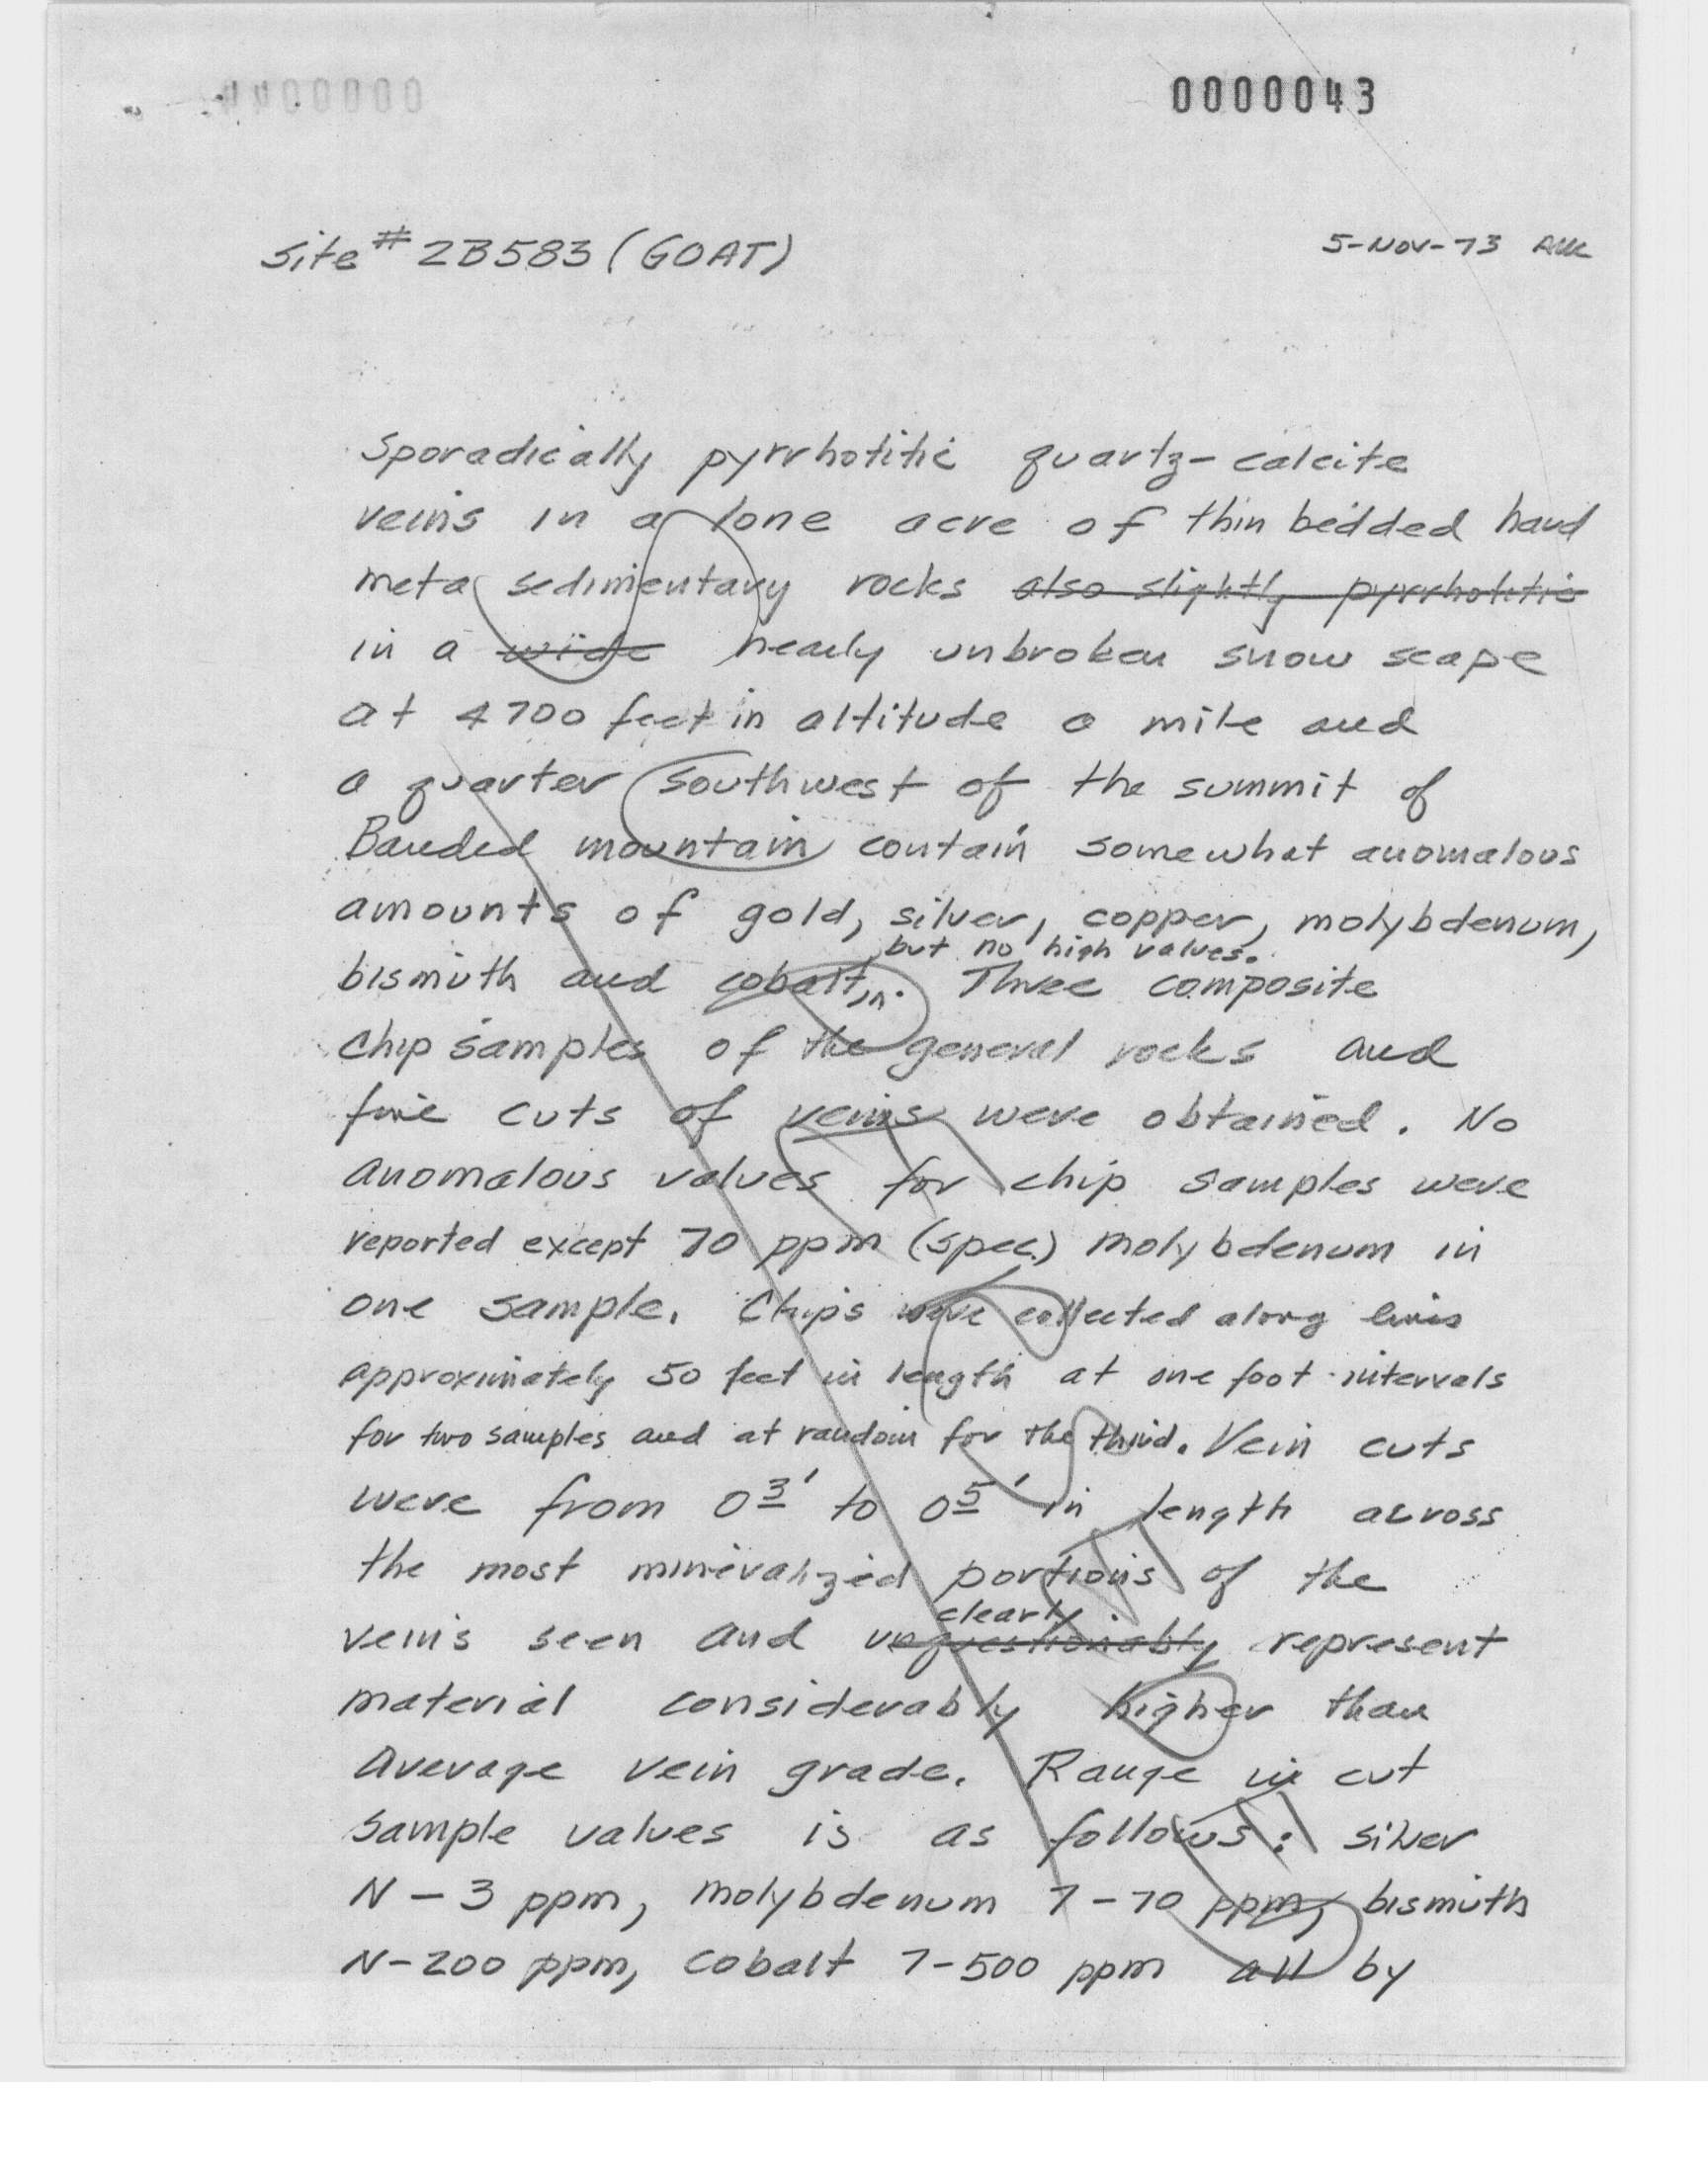 0000043
Site # 2B583 (GOAT)
5-Nov-73
Sporadically pyrrhotitic quartz-calcite
veins in a lone acre of thin bedded hard
meta sedimentary rocks also slightly pyrrhotitic
in a wide nearly unbroken snow scape
at 4700 feet in altitude a mile and
a quarter southwest of the summit of
Banded mountain contain somewhat anomalous
amounts of gold, silver, copper, molybdenum,
but no high values.
bismuth and cobalt, in. Three composite
chip samples of the general rocks and
five cuts of veins were obtained. No
anomalous values for chip samples were
reported except 70 ppm (spec.) molybdenum in
one sample. Chips were collected along lines
approximately 50 feet in length at one foot intervals
for two samples and at random for the third. Vein cuts
were from 0 3' to 0 5' in length across
the most mineralized portions of the
clearly
veins seen and unquestionably represent
material considerably higher than
average vein grade. Range in cut
sample values is as follows: silver
N - 3 ppm, molybdenum 7 - 70 ppm, bismuth
N-200 ppm, cobalt 7-500 ppm all by